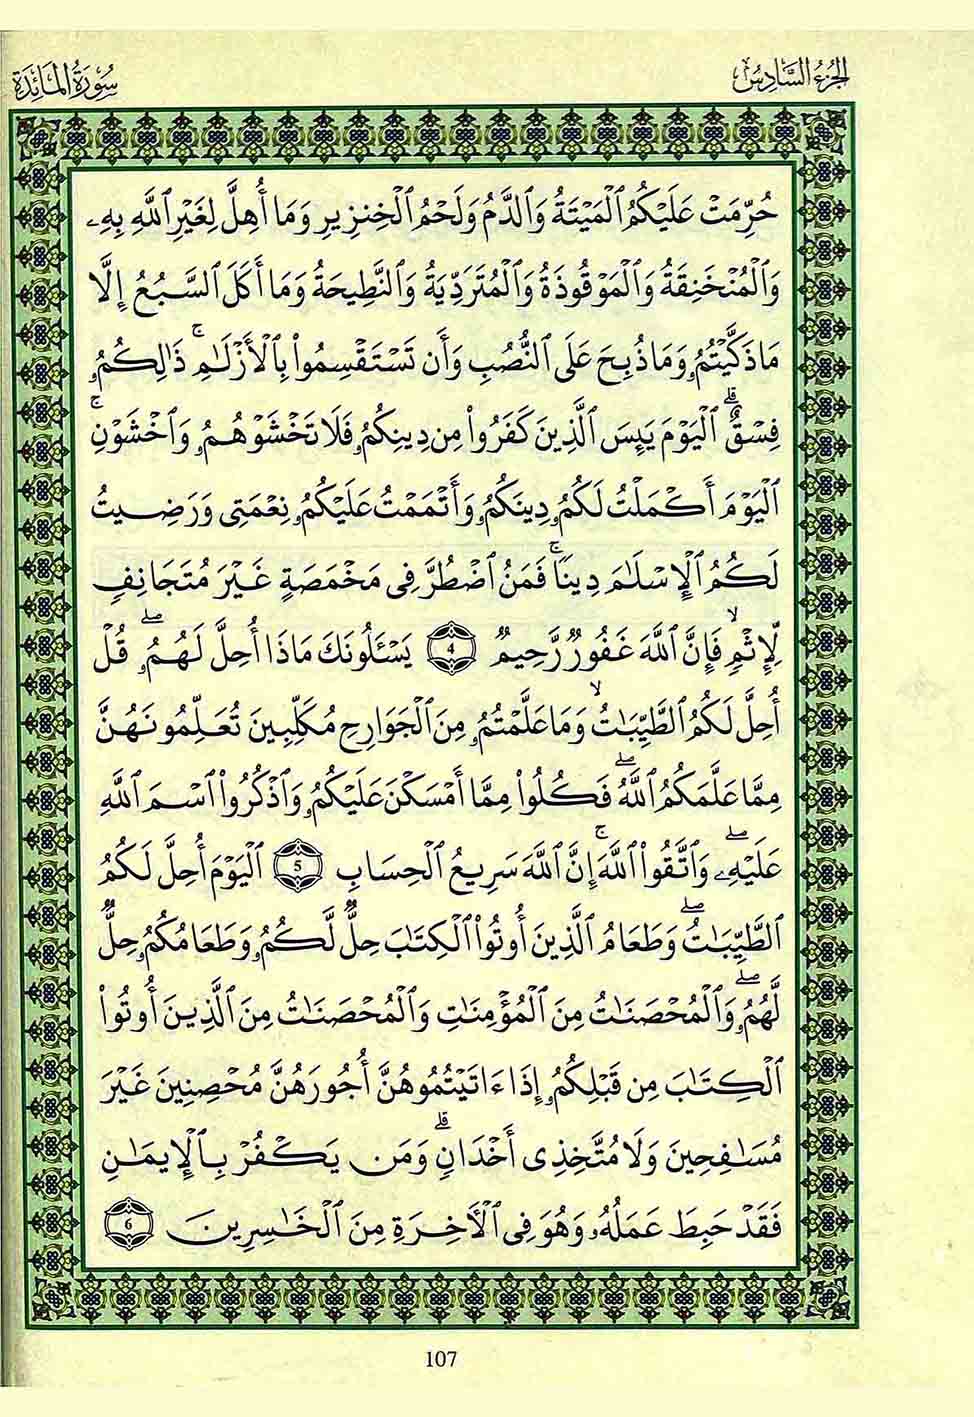 الجزء السادس
سورة المائدة
حُرِّمَتْ عَلَيْكُمُ ٱلْمَيْتَةُ وَٱلدَّمُ وَلَحْمُ ٱلْخِنزِيرِ وَمَا أُهِلَّ لِغَيْرِ ٱللَّهِ بِهِۦ
وَٱلْمُنْخَنِقَةُ وَٱلْمَوْقُوذَةُ وَٱلْمُتَرَدِّيَةُ وَٱلنَّطِيحَةُ وَمَا أَكَلَ ٱلسَّبُعُ إِلَّا
مَا ذَكَّيْتُمُۥ وَمَا ذُبِحَ عَلَى ٱلنُّصُبِ وَأَن تَسْتَقْسِمُواْ بِٱلْأَزْلَٰمِ ۚ ذَٰلِكُمُۥ
فِسْقٌ ۗ ٱلْيَوْمَ يَئِسَ ٱلَّذِينَ كَفَرُواْ مِن دِينِكُمُۥ فَلَا تَخْشَوْهُمُۥ وَٱخْشَوْنِ ۚ
ٱلْيَوْمَ أَكْمَلْتُ لَكُمُۥ دِينَكُمُۥ وَأَتْمَمْتُ عَلَيْكُمُۥ نِعْمَتِى وَرَضِيتُ
لَكُمُ ٱلْإِسْلَٰمَ دِينًا ۚ فَمَنُ ٱضْطُرَّ فِى مَخْمَصَةٍ غَيْرَ مُتَجَانِفٍ
لِّإِثْمٍ ۙ فَإِنَّ ٱللَّهَ غَفُورٌ رَّحِيمٌ 4 يَسْـَٔلُونَكَ مَاذَا أُحِلَّ لَهُمُۥ ۖ قُلْ
أُحِلَّ لَكُمُ ٱلطَّيِّبَٰتُ ۙ وَمَا عَلَّمْتُمُۥ مِنَ ٱلْجَوَارِحِ مُكَلِّبِينَ تُعَلِّمُونَهُنَّ
مِمَّا عَلَّمَكُمُ ٱللَّهُ ۖ فَكُلُواْ مِمَّا أَمْسَكْنَ عَلَيْكُمُۥ وَٱذْكُرُواْ ٱسْمَ ٱللَّهِ
عَلَيْهِۦ ۖ وَٱتَّقُواْ ٱللَّهَ ۚ إِنَّ ٱللَّهَ سَرِيعُ ٱلْحِسَابِ 5 ٱلْيَوْمَ أُحِلَّ لَكُمُ
ٱلطَّيِّبَٰتُ ۖ وَطَعَامُ ٱلَّذِينَ أُوتُواْ ٱلْكِتَٰبَ حِلٌّ لَّكُمُۥ وَطَعَامُكُمُۥ حِلٌّ
لَّهُمُۥ ۖ وَٱلْمُحْصَنَٰتُ مِنَ ٱلْمُؤْمِنَٰتِ وَٱلْمُحْصَنَٰتُ مِنَ ٱلَّذِينَ أُوتُواْ
ٱلْكِتَٰبَ مِن قَبْلِكُمُۥ إِذَا ءَاتَيْتُمُوهُنَّ أُجُورَهُنَّ مُحْصِنِينَ غَيْرَ
مُسَٰفِحِينَ وَلَا مُتَّخِذِى أَخْدَانٍ ۗ وَمَن يَكْفُرْ بِٱلْإِيمَٰنِ
فَقَدْ حَبِطَ عَمَلُهُۥ وَهُوَ فِى ٱلْأَخِرَةِ مِنَ ٱلْخَٰسِرِينَ 6
107